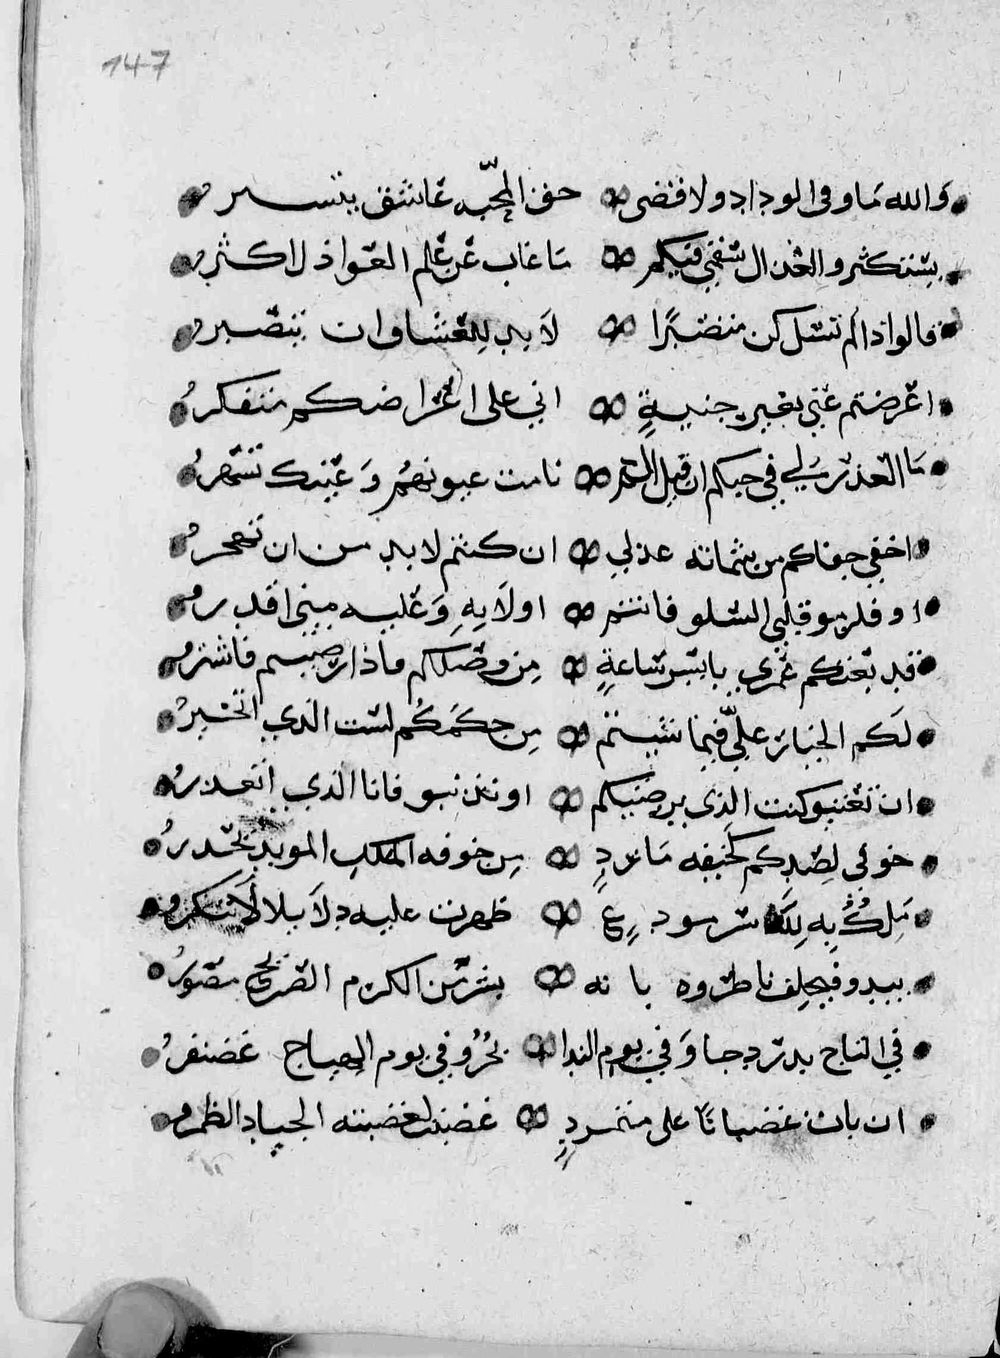 147
والله ما وفى الوداد ولا قضى حق المحبه عاشق يتستر
يستكثروا العذال شغفي فيكم ما غاب عن علم العواذل اكثر
قالوا اذا لم تسل كن متصبرًا لا بد للعشاق ان يتصبر
اعرضتم عني بغير جنيةٍ اني على اعراضكم متفكرُ
ما العذر لي في حبكم ان قيل نامت عيونهم وَعينك تسهرُ
اخفي جفاكم من شماته عذلي ان كنتم لا بد من ان تهجرُ
او فلرمو قلبي السلو فانتم اولَا بِهِ وَعليه مني اقدر
قد بعتكم عمري بايسر ساعةٍ مِن وصلكم ماذا رضيتم فاشترو
لكم الخيار عليّ فيما شيتم مِن حكمكُم لست الذي اتخيرُ
ان تعتبو كنت الذي يرضيكم او تذنبو فانا الذي اتعذرُ
خوفي لِصدكم كخيفه ماردٍ مِن خوفه الملك المويد يحذرُ
مَلِكُ بِهِ ظهرت عليه دلَايلا لَا تنكرو
يبدو فيحلف ناظروه بانه بشر من الكرم الصريح مصورُ
في التاج بدر دجا وَفي يوم الندا بحرُ وفي يوم الهياج غضنفرُ
ان بات غضبانًا على متمردٍ غضبت لغضبته الجياد الضمر